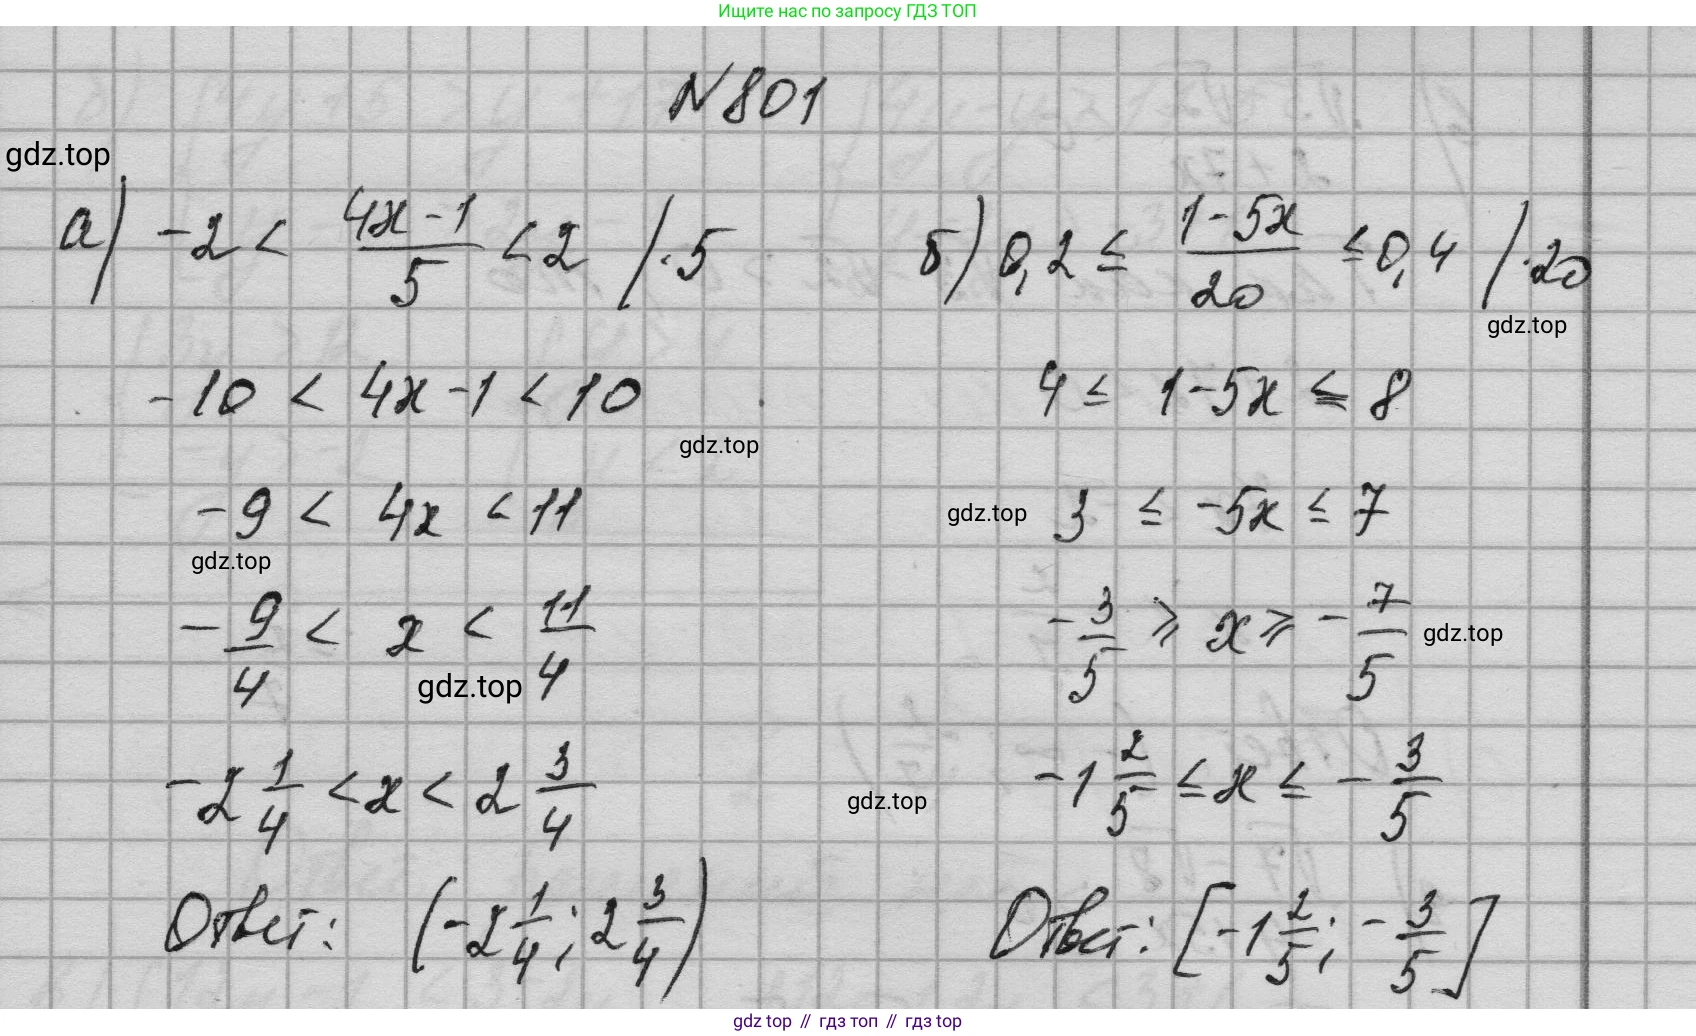 Ищите нас по запросу ГДЗ ТОП
N801
gdz.top
а) -2 < (4x-1)/5 < 2 /·5
-10 < 4x-1 < 10
gdz.top
-9 < 4x < 11
gdz.top
-9/4 < x < 11/4
gdz.top
-2 1/4 < x < 2 3/4
Ответ: (-2 1/4; 2 3/4)
б) 0,2 ≤ (1-5x)/20 ≤ 0,4 /·20
gdz.top
4 ≤ 1-5x ≤ 8
gdz.top 3 ≤ -5x ≤ 7
-3/5 ≥ x ≥ -7/5 gdz.top
gdz.top -1 2/5 ≤ x ≤ -3/5
Ответ: [-1 2/5; -3/5]
gdz top // гдз топ // gdz top